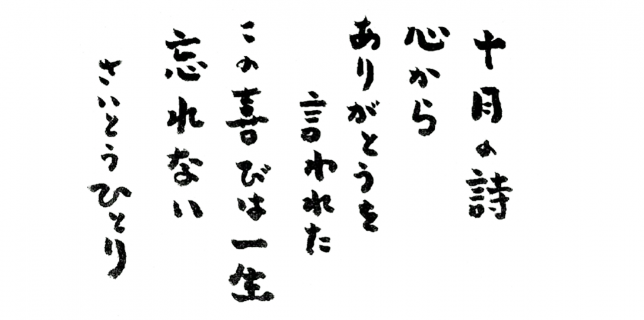 十月の詩
心から
ありがとうを
言われた
この喜びは一生
忘れない
さいとうひとり